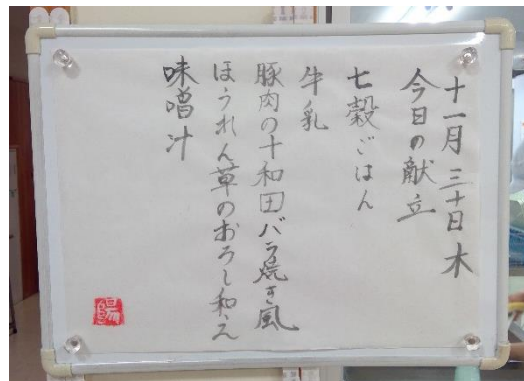 十一月三十日木
今日の献立
七穀ごはん
牛乳
豚肉の十和田バラ焼き風
ほうれん草のおろし和え
味噌汁